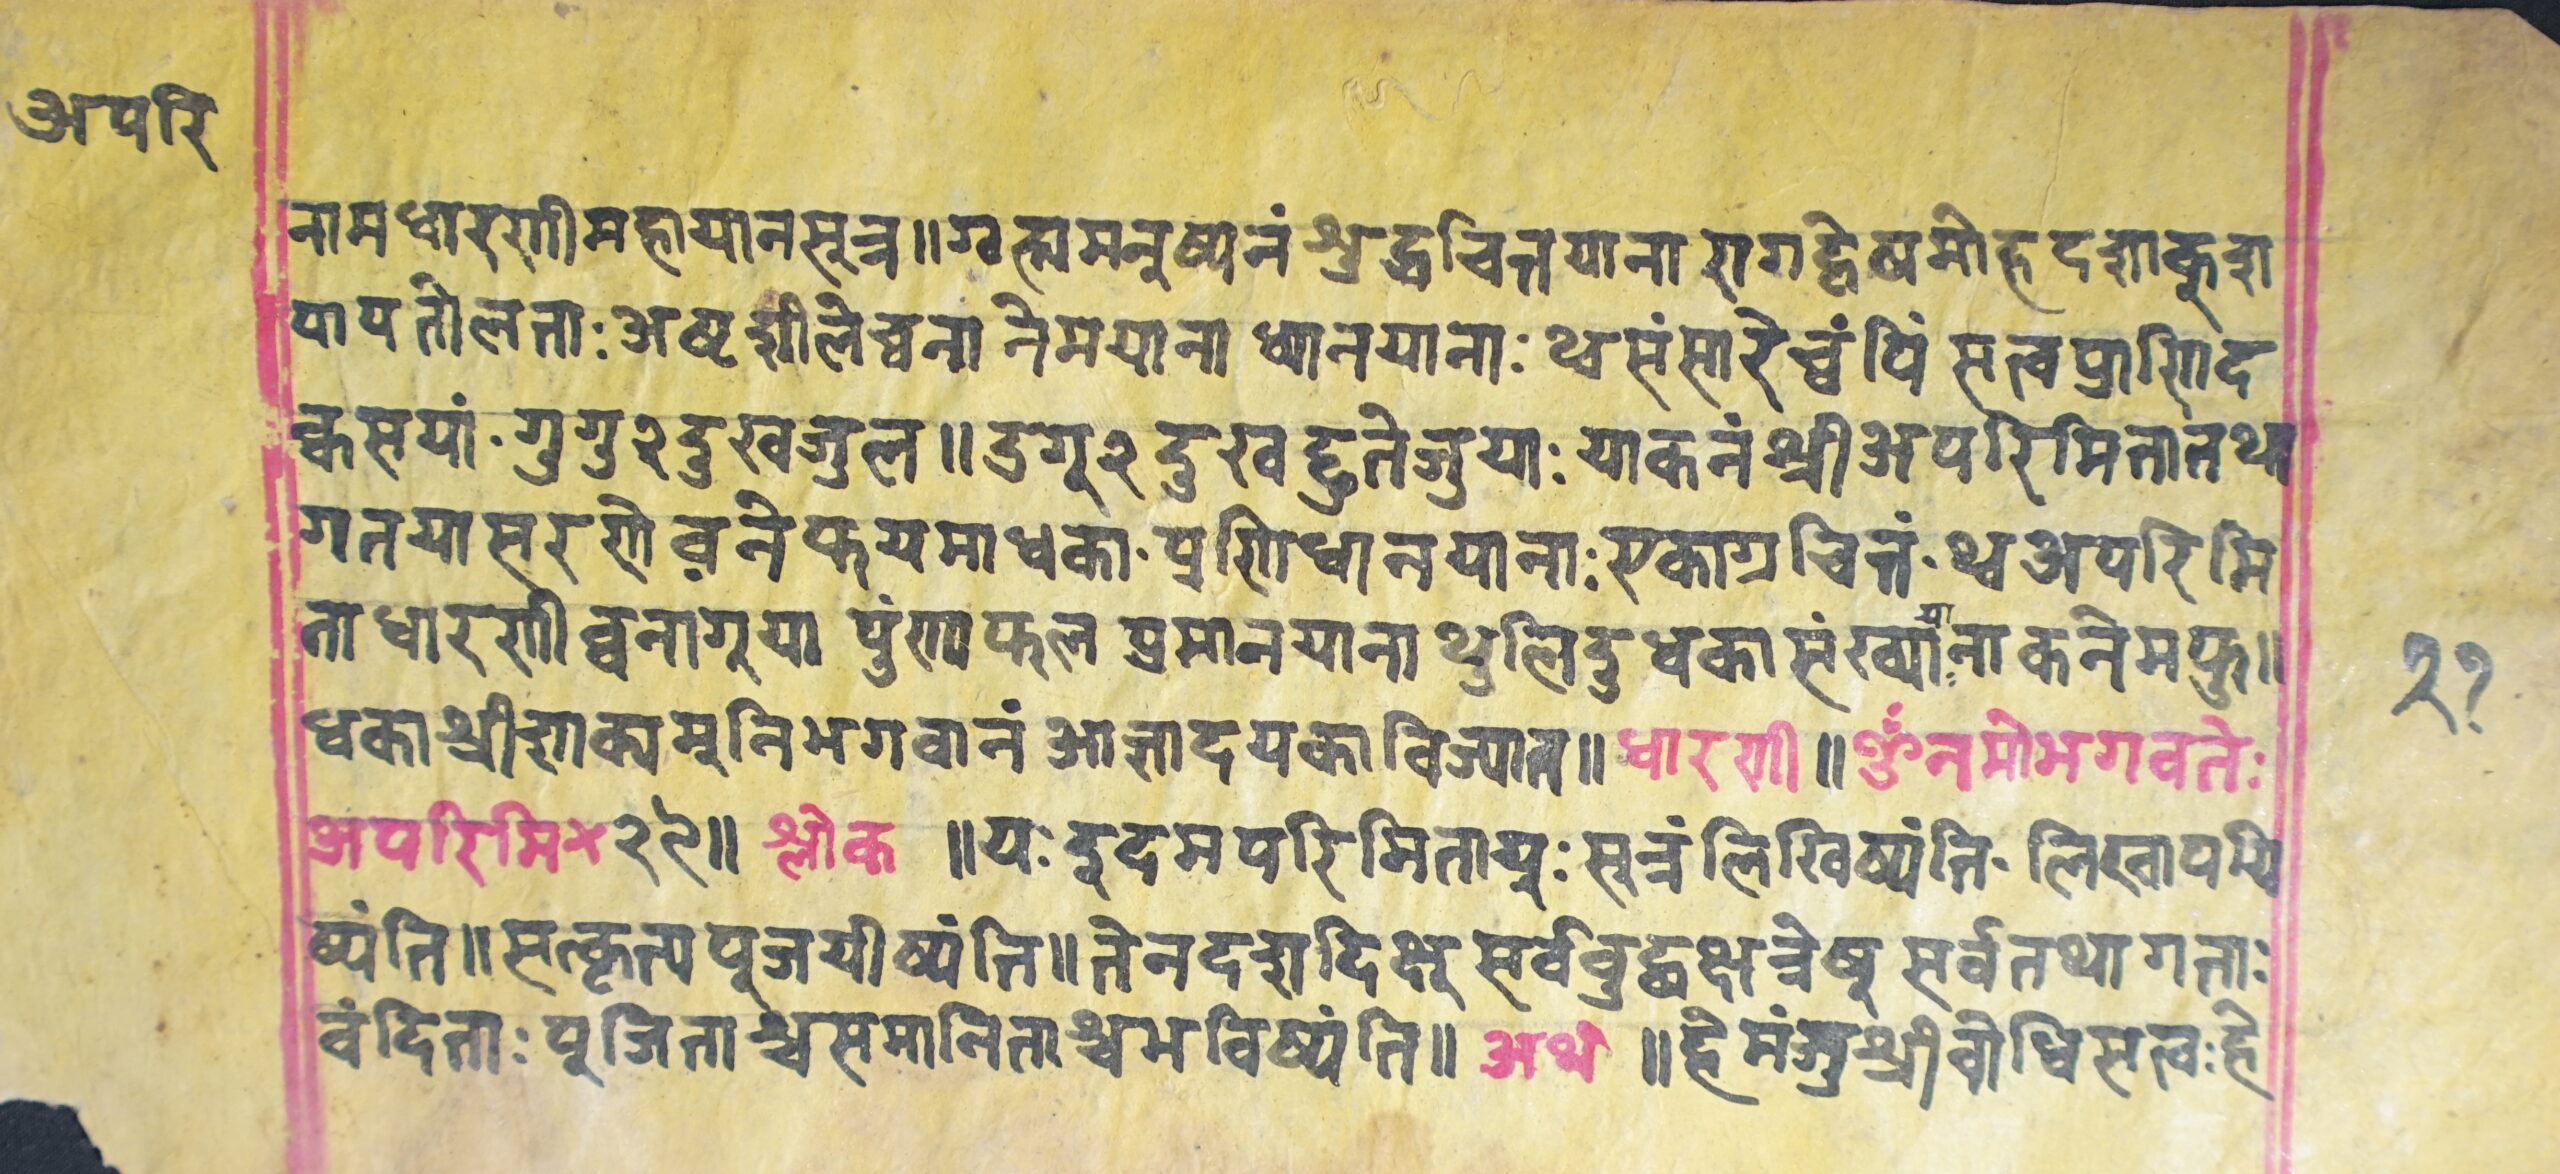 अपरि
नाम धारणी महायानसूत्र॥ गृह्म मनुष्यनं श्रद्धचित्तयाना रागद्वेष्यमोह दशाकूश
पापतोलता: अष्टशीलेच्वना नेमयाना ध्यानयाना: थ्वसंसारे च्वंपिं सत्वप्राणिद
क्वसयां· गुगु२दुखजुल॥ उगू२ दुखद्दुतेजुया: याकनं श्री अपरिमितातथा
गतयासरणे व़ने फयमाधका· प्रणिधानयाना: एकाग्रचित्तं· थ्व अपरिमि
ताधारणी ब्वनागूया पुंण्यफल प्रमानयाना थुलिदुधका संख्या याना कनेमफु॥
धका श्रीशाक्यमूनिभगवानं आज्ञादयका विज्यात॥ धारणी॥ ॐ नमो भगवते:
अपरिमि× २९॥ श्लोक ॥ य: इदमपरिमितायु: सूत्रं लिखिष्यंति· लिखापयि
ष्यंति॥ सत्कृत्य पूजयीष्यंति॥ तेन दशदिक्षू सर्वबुद्धक्षत्रेषू सर्वतथागता:
वंदिता: पूजिताश्च समानिताश्च भविष्यंति॥ अर्थ ॥ हे मंजुश्री बोधिसत्व: हे
२१